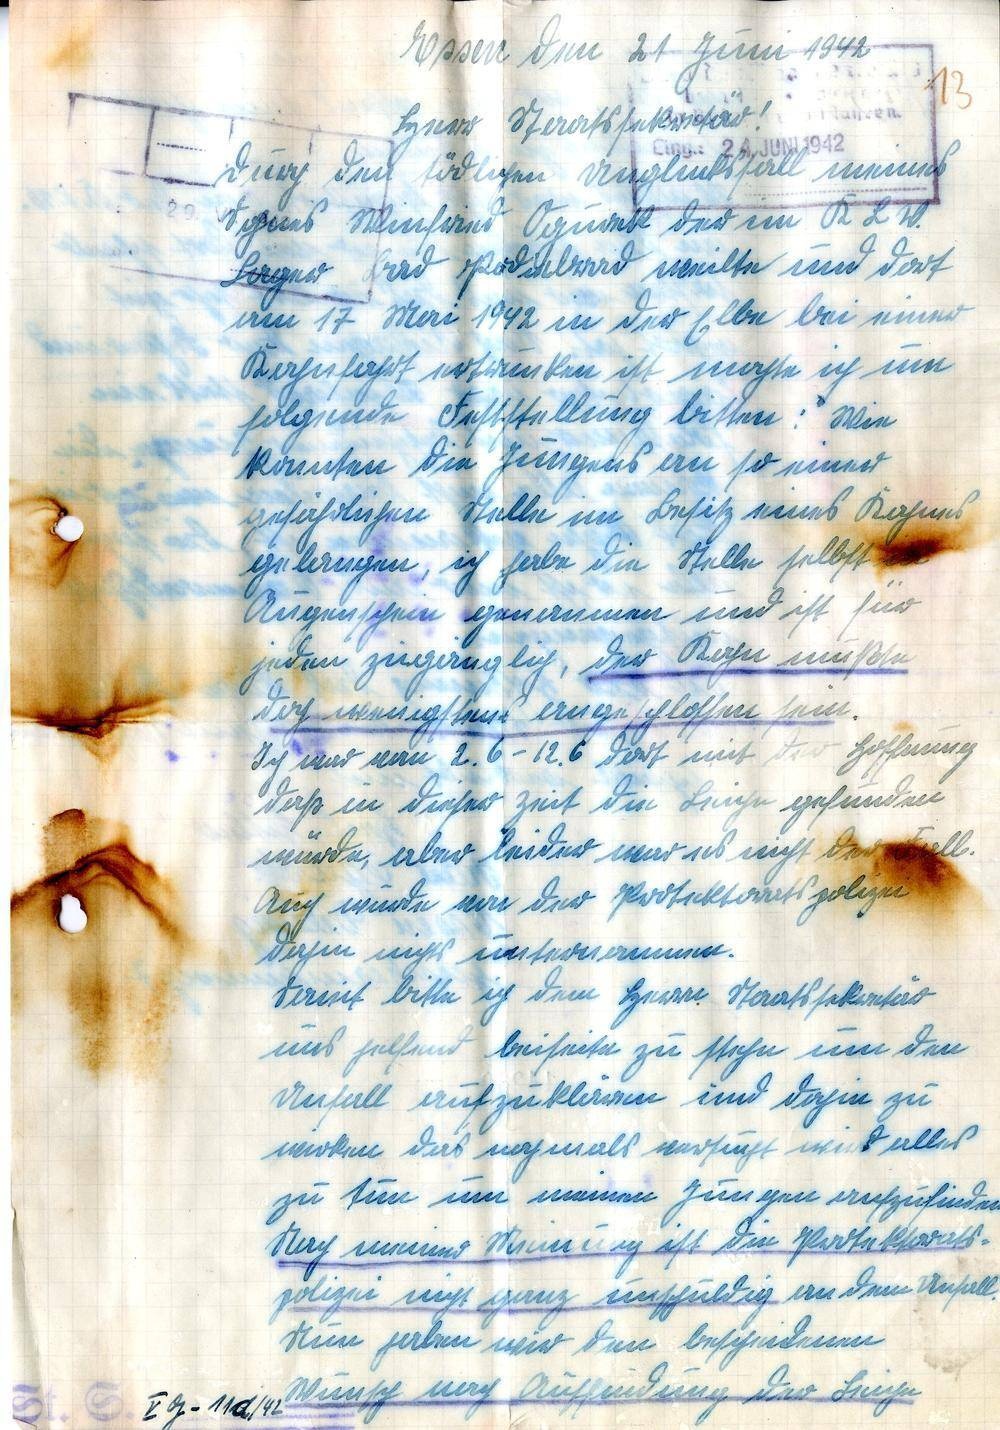 Essen den 21 Juni 1942
13
Herr Staatssekretär!
Eing.: 24. JUNI 1942
Durch den tödlichen Unglücksfall meines
Sohnes Winfried Ogurek der im K L V.
Lager Bad Podiebrad weilte und dort
am 17 Mai 1942 in der Elbe bei einer
Kahnfahrt ertrunken ist möchte ich um
folgende Feststellung bitten: Wie
konnten die Jungens an so einer
gefährlichen Stelle im Besitz eines Kahnes
gelangen, ich habe die Stelle selbst in
Augenschein genommen und ist für
jeden zugänglich, der Kahn mußte
doch wenigstens angeschlossen sein.
Ich war vom 2.6-12.6 dort mit der Hoffnung
daß in dieser Zeit die Leiche gefunden
würde, aber leider war es nicht der Fall.
Auch wurde von der Protektoratspolizei
dahin nichts unternommen.
Damit bitte ich dem Herrn Staatssekretär
uns helfend beiseite zu stehn um den
Unfall aufzuklären und dahin zu
wirken das nochmals versucht wird alles
zu tun um meinen Jungen aufzufinden
Nach meiner Meinung ist die Protektorats-
polizei nicht ganz unschuldig an dem Unfall.
Nun haben wir den bescheidenen
Wunsch nach Auffindung der Leiche
St. S.
V J - 11d/42